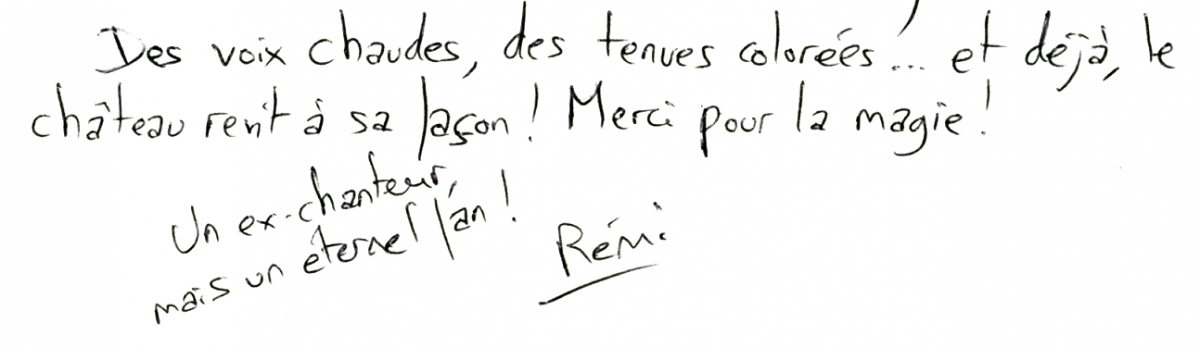 Des voix chaudes, des tenues colorées!... et déjà, le
château revit à sa façon! Merci pour la magie!
Un ex-chanteur,
mais un éternel fan!
Rémi